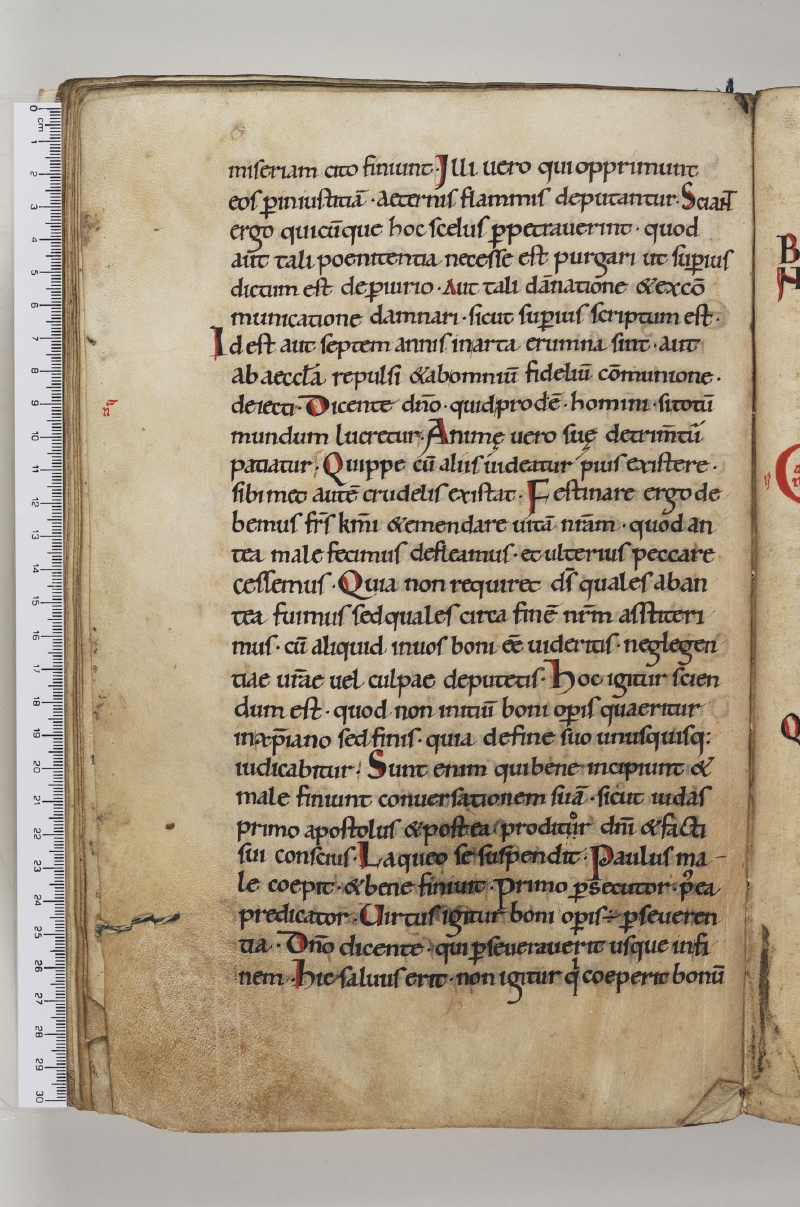 miseriam cito finiunt. Illi uero qui opprimunt
eos ꝑiniustitiā · aeternis flammis deputantur. Sciant
ergo quicūque hoc scelus ꝑpetrauerint · quod
aūt tali poenitentia necesse est purgari ut suꝑius
dictum est deꝑiurio. Aut tali dānatione & excō
municatione damnari · sicut suꝑius scriptum est ·
Id est aut septem annis inarta erumna sint · aut
ab aeccƚa repulsi & abomniū fideliū cōmunione ·
deiecti. Dicente dn̄o · quid prodē · homini · si totū
mundum lucretur. Animę uero suę detrim̄tū
patiatur. Quippe cū aliis uideatur pius existere ·
sibimet autē crudelis existat. Festinare ergo de
bemus fr̄s km̄i & emendare uitā nr̄am · quod an
tea male fecimus defleamus · et ulterius peccare
cessemus. Quia non requiret ds̄ quales aban
tea fuimus sed quales circa finē nr̄m astiteri
mus · cū aliquid inuos boni ēē uideritis · neglegen
tiae ur̄ae uel culpae deputetis. Hoc igitur scien
dum est · quod non initiū boni oꝑis quaeritur
inxp̄iano sed finis · quia define suo unusquisq:
iudicabitur. Sunt enim qui bene incipiunt &
male finiunt conuersationem suā · sicut iudas
primo apostolus & postea proditor dn̄i & facti
sui conscius. Laqueo se suspendit. Paulus ma
le coepit · & bene finiuit. Primo ꝑsecutor · p̄ea
predicator. Uirtus igitur boni oꝑis ÷ ꝑseueren
tia. Dn̄o dicente · qui ꝑseuerauerit usque infi
nem. Hic saluus erit · non igitur q̇ coeperit bonū
cm
0
1
2
3
4
5
6
7
8
9
10
11
12
13
14
15
16
17
18
19
20
21
22
23
24
25
26
27
28
29
30